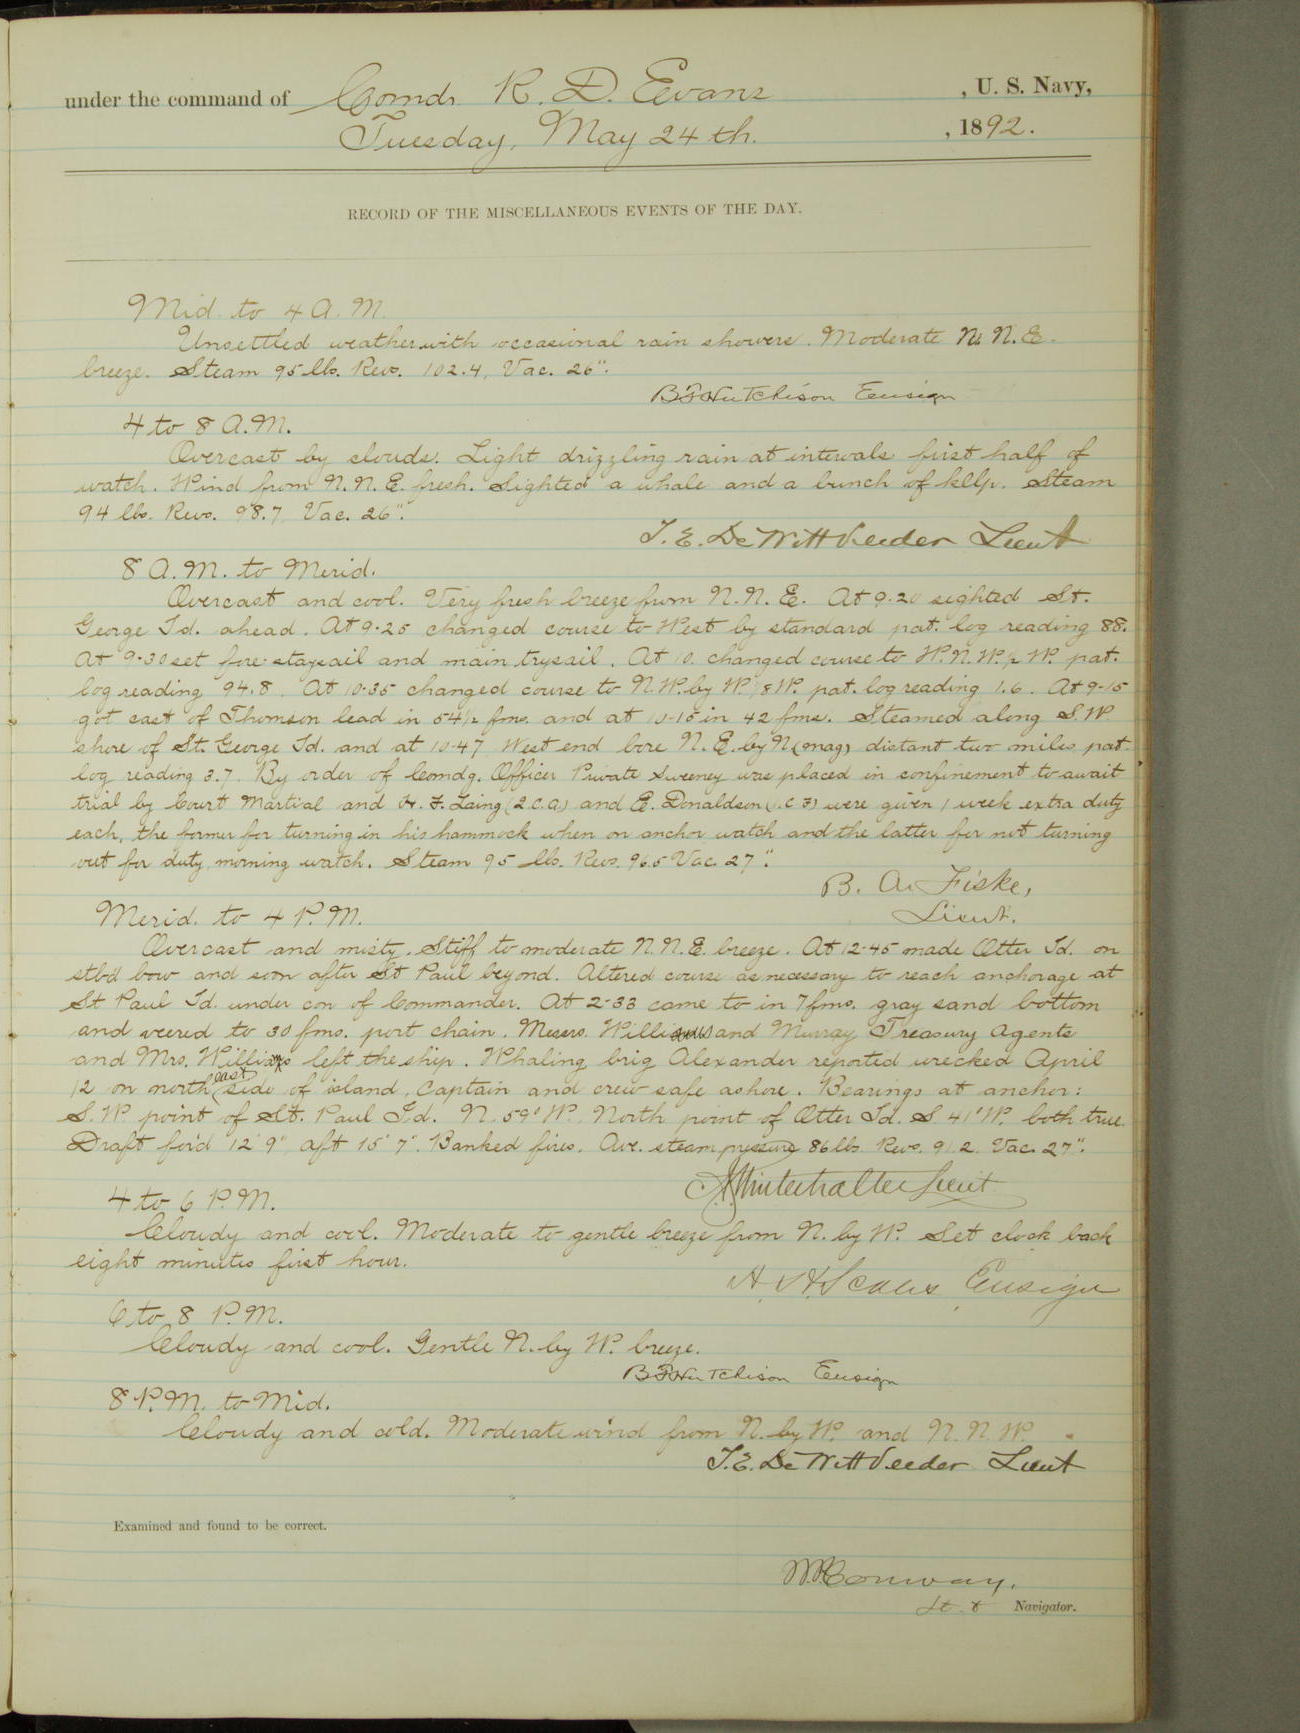 under the command of Comdr R. D. Evans , U. S. Navy,
Tuesday, May 24th. , 1892.
RECORD OF THE MISCELLANEOUS EVENTS OF THE DAY.
Mid. to 4 A. M.
Unsettled weather with occasional rain showers. Moderate N. N. E.
breeze. Steam 95 lbs. Revs. 102.4, Vac. 26".
B F Hutchison Ensign
4 to 8 A.M.
Overcast by clouds. Light drizzling rain at intervals first half of
watch. Wind from N. N. E. fresh. Sighted a whale and a bunch of kelp. Steam
94 lbs. Revs. 98.7 Vac. 26".
T. E. DeWitt Veeder Lieut
8 A.M. to Merid.
Overcast and cool. Very fresh breeze from N. N. E. At 9.20 sighted St.
George Id. ahead. At 9.25 changed course to West by standard pat. log reading 88.
At 9.30 set fore staysail and main trysail. At 10. changed course to W.N.W.½ W. pat.
log reading 94.8. At 10.35 changed course to N.W. by W. ⅛ W. pat. log reading 1.6. At 9-15
got cast of Thomson lead in 54½ fms. and at 10-15 in 42 fms. Steamed along S.W.
shore of St. George Id. and at 10.47 West end bore N.E. by N (mag) distant two miles pat.
log reading 3.7. By order of Comdg. Officer Private Sweeney was placed in confinement to await
trial by Court Martial and H. F. Laing (2.C.A.) and E. Donaldson (1.C.F) were given 1 week extra duty
each, the former for turning in his hammock when on anchor watch and the latter for not turning
out for duty morning watch. Steam 95 lbs. Revs. 96.5 Vac. 27".
B. A. Fiske,
Lieut.
Merid. to 4 P. M.
Overcast and misty. Stiff to moderate N.N.E. breeze. At 12-45 made Otter Id. on
stbd bow and soon after St Paul beyond. Altered course as necessary to reach anchorage at
St Paul Id. under con of Commander. At 2-33 came to in 7 fms. gray sand bottom
and veered to 30 fms. port chain. Messrs. Williams and Murray Treasury Agents
and Mrs. Williams left the ship. Whaling brig Alexander reported wrecked April
12 on north east side of island, Captain and crew safe ashore. Bearings at anchor:
S.W. point of St. Paul Id. N. 59° W. North point of Otter Id. S 41° W. both true.
Draft for'd 12' 9" aft 15' 7". Banked fires. Ave. steam pressure 86 lbs Revs. 91.2 Vac. 27".
Winterhalter Lieut
4 to 6 P.M.
Cloudy and cool. Moderate to gentle breeze from N. by W. Set clock back
eight minutes first hour.
A. H. Scales, Ensign
6 to 8 P.M.
Cloudy and cool. Gentle N. by W. breeze.
B F Hutchison Ensign
8 P.M. to Mid.
Cloudy and cold. Moderate wind from N. by W. and N. N. W.
T. E. DeWitt Veeder Lieut
Examined and found to be correct.
Conway,
Lt. & Navigator.